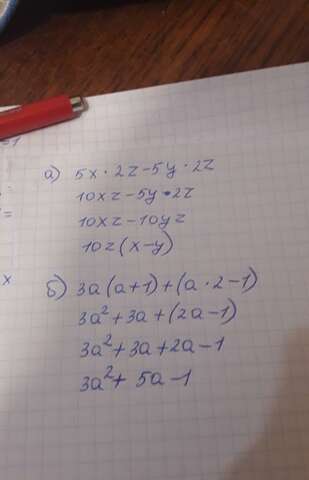 =1
а) 5x · 2z - 5y · 2z
10xz - 5y · 2z
10xz - 10yz
10z(x-y)
x
б) 3a(a+1)+(a · 2-1)
3a²+3a+(2a-1)
3a²+3a+2a-1
3a²+ 5a-1